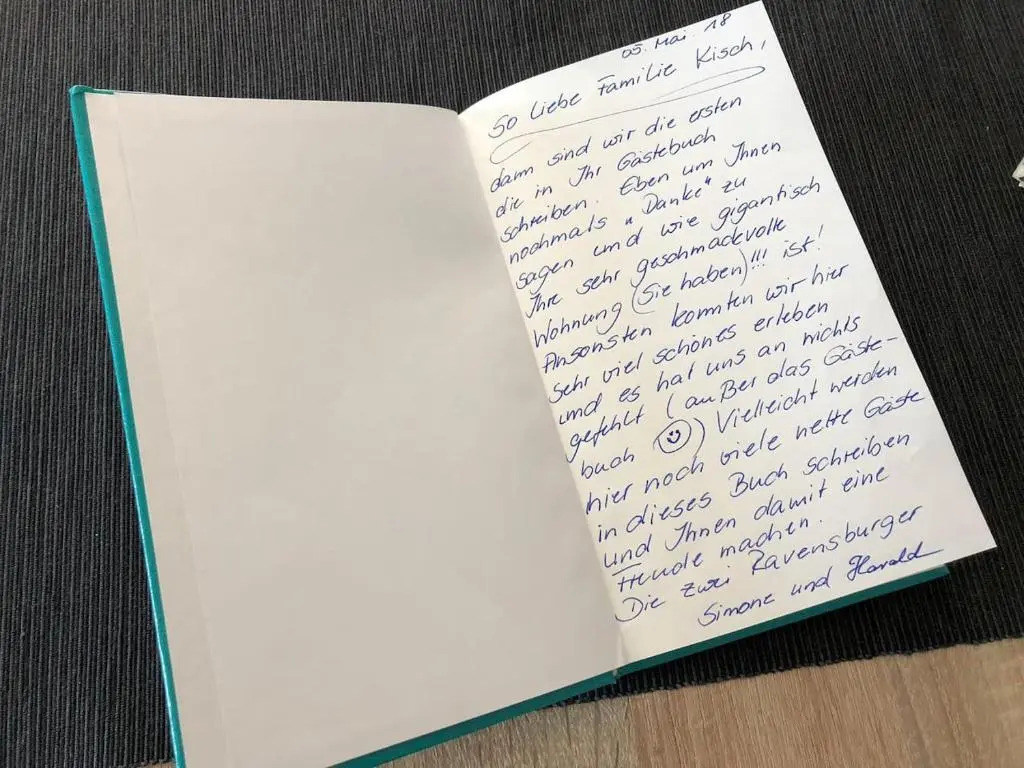 05. Mai. 18
So liebe Familie Kisch,
dann sind wir die ersten
die in Ihr Gästebuch
schreiben. Eben um Ihnen
nochmals „Danke" zu
sagen und wie gigantisch
Ihre sehr geschmackvolle
Wohnung (Sie haben)!!! ist!
Ansonsten konnten wir hier
sehr viel schönes erleben
und es hat uns an nichts
gefehlt (außer das Gäste-
buch ☺) Vielleicht werden
hier noch viele nette Gäste
in dieses Buch schreiben
und Ihnen damit eine
Freude machen.
Die zwei Ravensburger
Simone und Harald